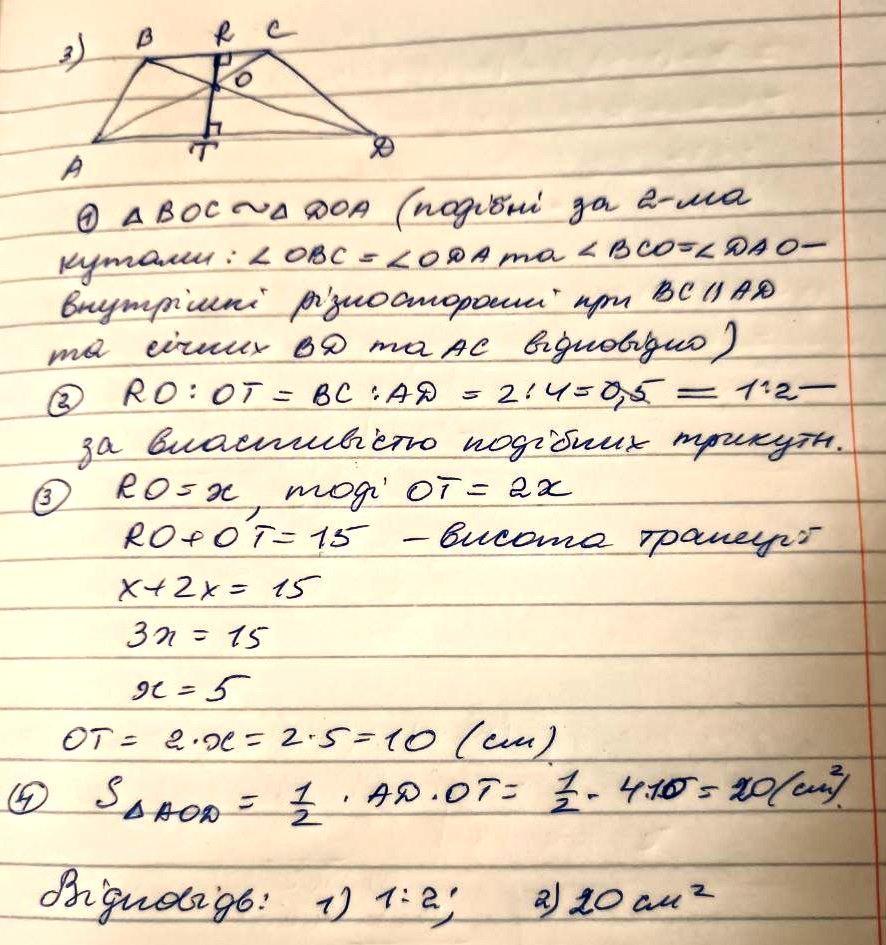 3)
B R C
O
A T D
① △ BOC ~ △ DOA (подібні за 2-ма
кутами: ∠ OBC = ∠ODA та ∠ BCO = ∠DAO –
внутрішні різносторонні при BC || AD
та січних BD та AC відповідно)
② RO : OT = BC : AD = 2 : 4 = 0,5 = 1:2 –
за властивістю подібних трикутн.
③ RO = x, тоді OT = 2x
RO + OT = 15 – висота трапеції
x + 2x = 15
3x = 15
x = 5
OT = 2·x = 2·5 = 10 (см)
④ S△AOD = 1/2 · AD · OT = 1/2 · 4·10 = 20 (см²).
Відповідь: 1) 1:2; 2) 20 см²